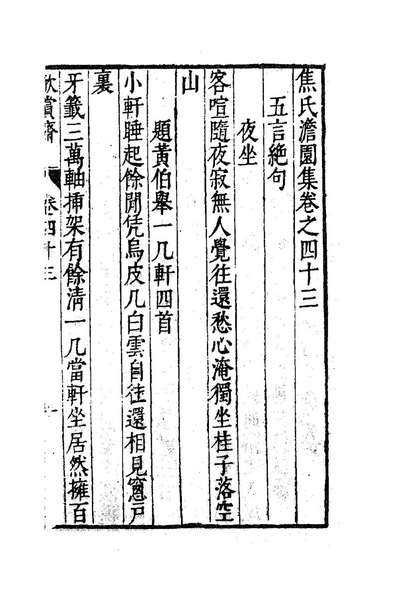 焦氏澹園集卷之四十三
五言絶句
夜坐
客喧隨夜寂無人覺往還愁心淹獨坐桂子落空
山
題黃伯舉一几軒四首
小軒睡起餘閒凭烏皮几白雲自往還相見窻戸
裏
牙籤三萬軸揷架有餘清一几當軒坐居然擁百
欣賞齋
卷四十三
一